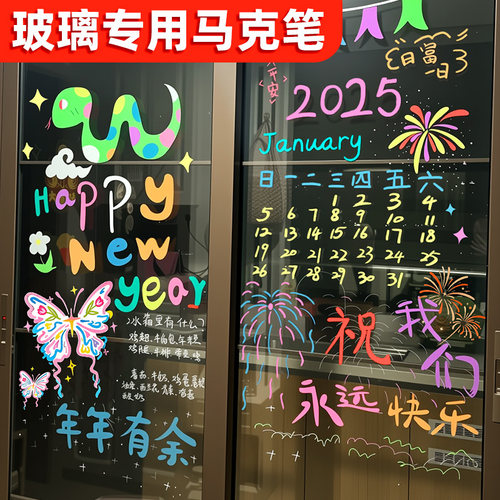 玻璃专用马克笔
Happy
New
year
冰箱里有什么?
年年有余
平安
日富一日
2025
January
日 一 二 三 四 五 六
1 2 3 4
5 6 7 8 9 10 11
12 13 14 15 16 17 18
19 20 21 22 23 24 25
26 27 28 29 30 31
祝
我们
永远
快乐